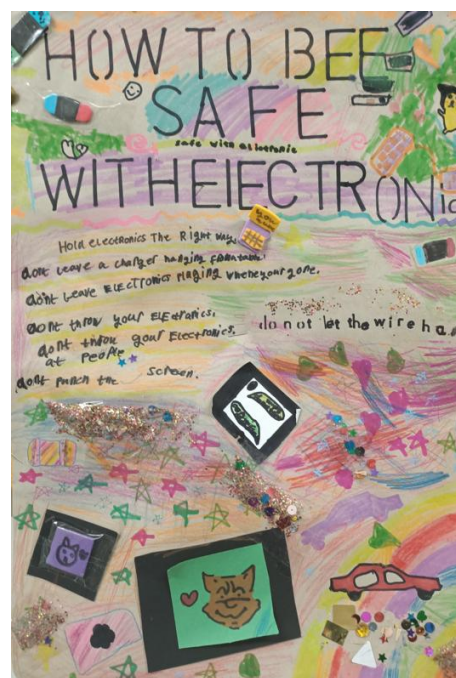 HOW TO BEE
SAFE
safe with electronic
WITH ElECTRONic
Hold electronics The Right way.
dont Leave a charger hanging from table.
don't Leave ELECTronics rinGing when your gone.
dont throw your ElEctronics.
dont throw your Electronics.
at People
dont Punch the screen.
do not let the wire ha